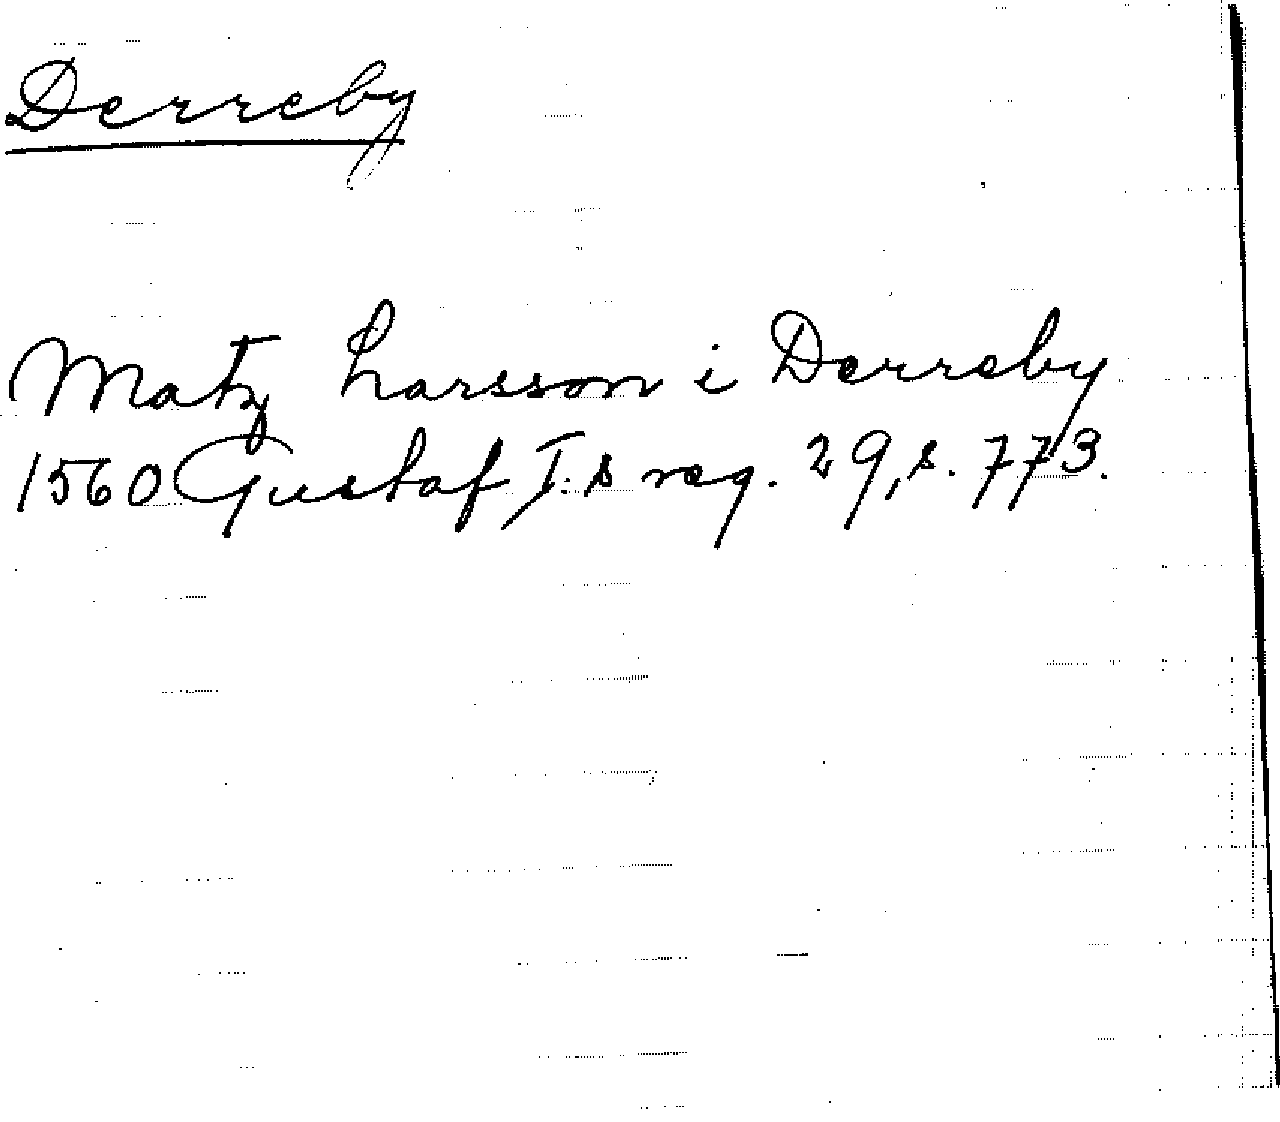 Derreby
Matz Larsson i Derreby
1560 Gustaf I.s reg. 29, s. 773.